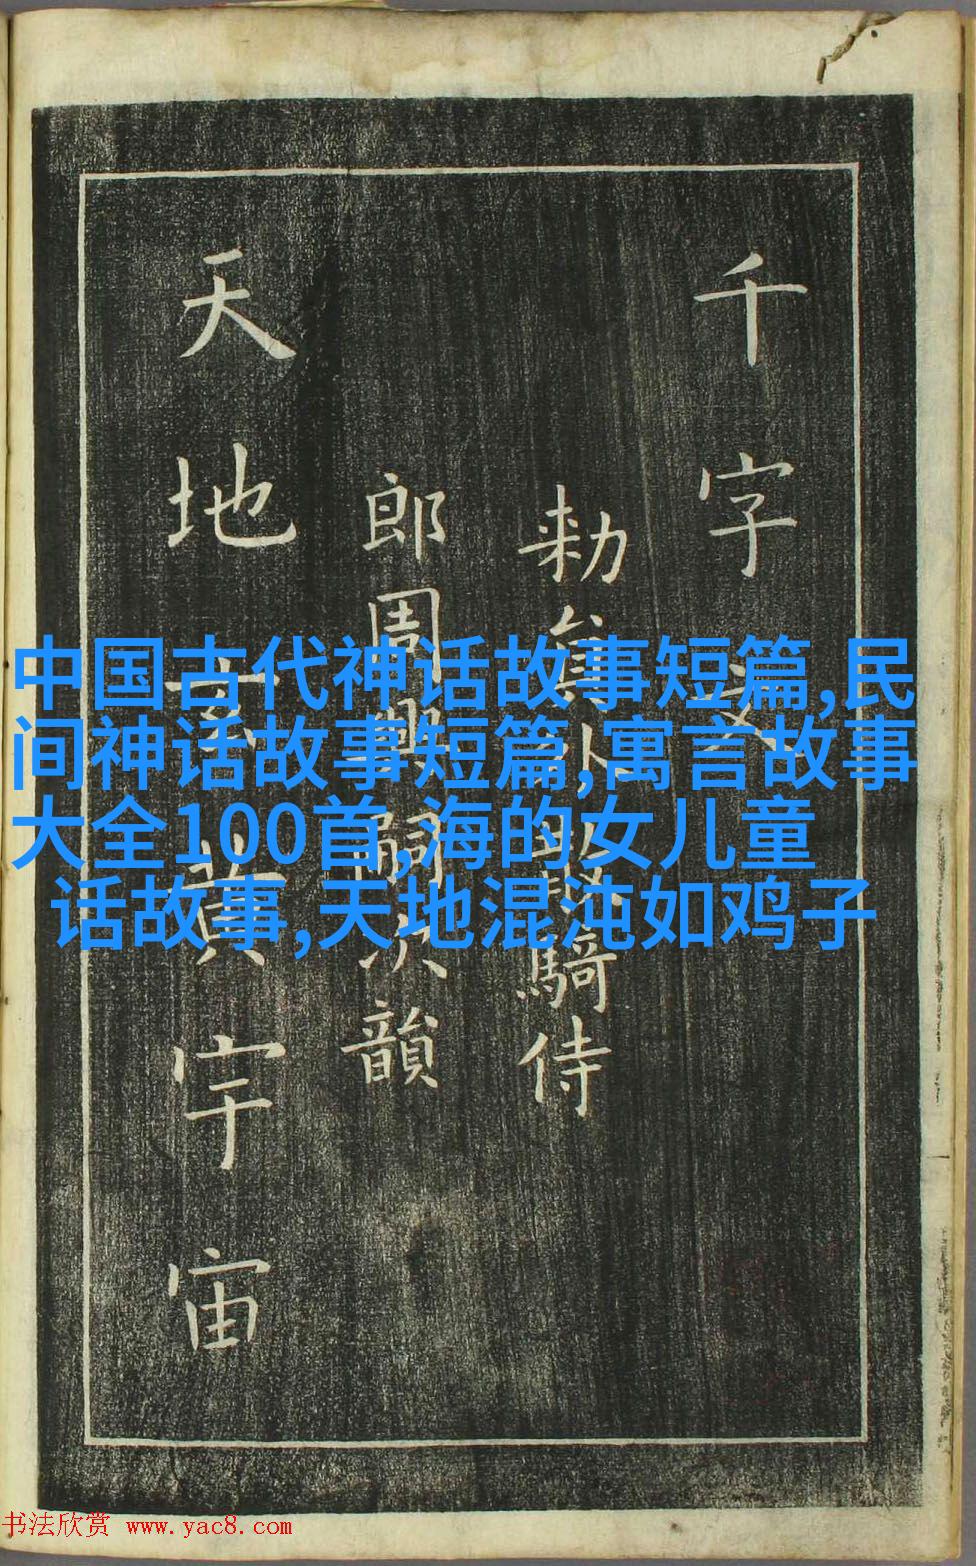 千字文
勅貟外散騎侍
郎周興嗣次韻
天地玄黄宇宙
中国古代神话故事短篇,民
间神话故事短篇,寓言故事
大全100首,海的女儿童
话故事,天地混沌如鸡子
书法欣赏 www.yac8.com